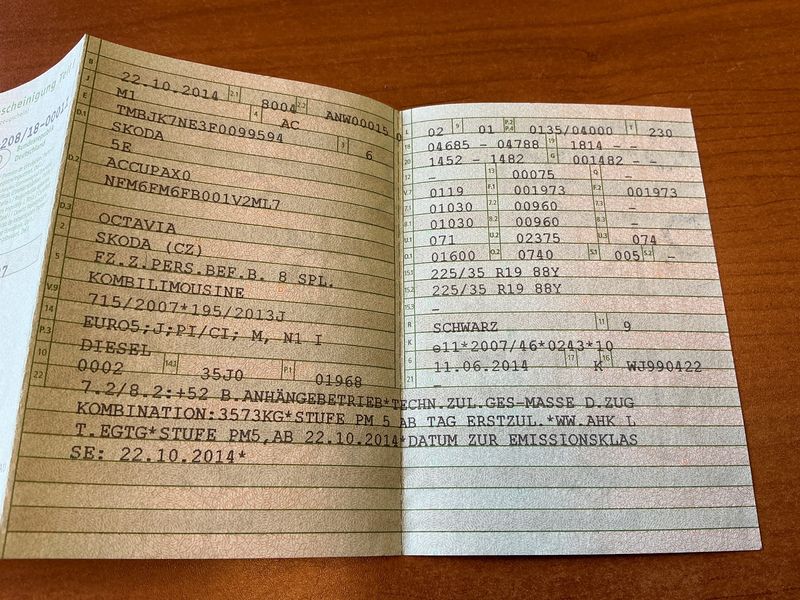 scheinigung Teil I
208/18-00011
Bundesrepublik
Deutschland
B 22.10.2014 2.1 8004 2.2 ANW00015 0
J M1 4 AC
E TMBJK7NE3F0099594 3 6
D.1 SKODA
5E
D.2 ACCUPAX0
NFM6FM6FB001V2ML7
D.3 OCTAVIA
2 SKODA (CZ)
5 FZ.Z.PERS.BEF.B. 8 SPL.
KOMBILIMOUSINE
V.9 715/2007*195/2013J
14 EURO5;J;PI/CI; M, N1 I
P.3 DIESEL
10 0002 14.1 35J0 P.1 01968
22 7.2/8.2:+52 B.ANHÄNGEBETRIEB*TECHN.ZUL.GES-MASSE D.ZUG
KOMBINATION:3573KG*STUFE PM 5 AB TAG ERSTZUL.*WW.AHK L
T.EGTG*STUFE PM5,AB 22.10.2014*DATUM ZUR EMISSIONSKLAS
SE: 22.10.2014*
L 02 9 01 P.2 P.4 0135/04000 T 230
18 04685 - 04788 19 1814 - -
20 1452 - 1482 G 001482 - -
12 - 13 00075 Q -
V.7 0119 F.1 001973 F.2 001973
7.1 01030 7.2 00960 7.3 -
8.1 01030 8.2 00960 8.3 -
U.1 071 U.2 02375 U.3 074
O.1 01600 O.2 0740 S.1 005 S.2 -
15.1 225/35 R19 88Y
15.2 225/35 R19 88Y
15.3 -
R SCHWARZ 11 9
K e11*2007/46*0243*10
6 11.06.2014 17 K 16 WJ990422
21 -